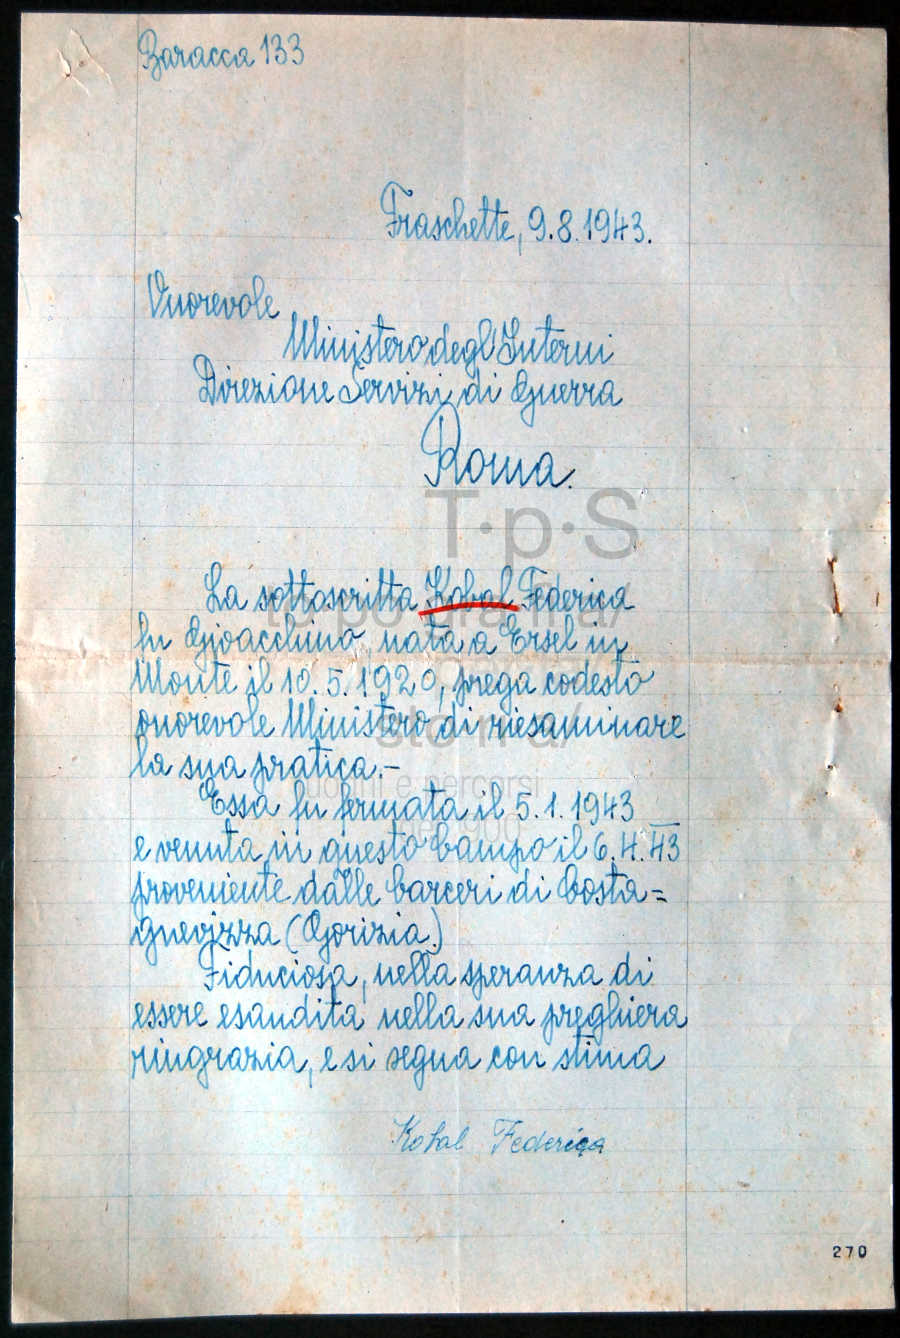 Baracca 133
Fraschette, 9.8.1943.
Onorevole
Ministero degl'Interni
Direzione Servizi di Guerra
Roma.
T·p·S
La sottoscritta Kobal Federica
fu Gioacchino, nata a Ersel in
Monte il 10.5.1920, prega codesto
onorevole Ministero di riesaminare
la sua pratica.-
Essa fu fermata il 5.1.1943
e venuta in questo Campo il 6.4.43
proveniente dalle Carceri di Costa=
gnevizza (Gorizia.)
Fiduciosa, nella speranza di
essere esaudita nella sua preghiera
ringrazia, e si segna con stima
Kobal Federica
270